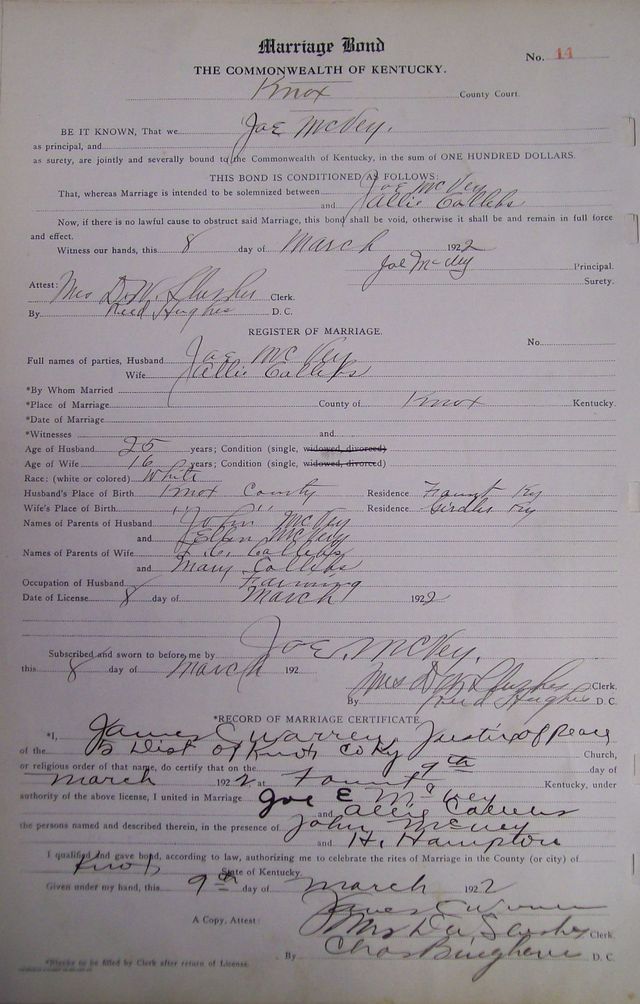 Marriage Bond
No. 11
THE COMMONWEALTH OF KENTUCKY.
Knox County Court.
BE IT KNOWN, That we Joe McVey.
as principal, and
as surety, are jointly and severally bound to the Commonwealth of Kentucky, in the sum of ONE HUNDRED DOLLARS.
THIS BOND IS CONDITIONED AS FOLLOWS:
That, whereas Marriage is intended to be solemnized between Joe McVey
and Allie Collebs
Now, if there is no lawful cause to obstruct said Marriage, this bond shall be void, otherwise it shall be and remain in full force
and effect.
Witness our hands, this 8 day of March 1922
Joe McVey Principal.
Surety.
Attest: Mrs D.W. Slusher Clerk.
By Reed Hughes D. C.
REGISTER OF MARRIAGE.
No.
Full names of parties, Husband Joe McVey
Wife Allie Collebs
*By Whom Married
*Place of Marriage County of Knox Kentucky.
*Date of Marriage
*Witnesses and
Age of Husband 25 years; Condition (single, widowed, divorced)
Age of Wife 16 years; Condition (single, widowed, divorced)
Race: (white or colored) White
Husband's Place of Birth Knox County Residence Fount Ky
Wife's Place of Birth " " Residence Girdler Ky
Names of Parents of Husband John McVey
and Ellen McVey
Names of Parents of Wife Collebs
and Mary Collebs
Occupation of Husband Farming
Date of License 8 day of March 1922
Subscribed and sworn to before me by Joe. McVey.
this 8 day of March 192
Mrs D W Slusher Clerk.
By Reed Hughes D. C.
*RECORD OF MARRIAGE CERTIFICATE
*I, James C Warren Justis of Peace
of the 5 Dist of Knox Co Ky Church,
or religious order of that name, do certify that on the 9th day of
March 1922 at Fount Kentucky, under
authority of the above license, I united in Marriage Joe E McVey
and Allie
the persons named and described therein, in the presence of John McVey
and H. Hampton
I qualified and gave bond, according to law, authorizing me to celebrate the rites of Marriage in the County (or city) of
Knox State of Kentucky.
Given under my hand, this 9th day of March 1922
James C Warren
A Copy, Attest: Mrs D W Slusher Clerk.
By Chas Bingham D. C.
*Blanks to be filled by Clerk after return of License.